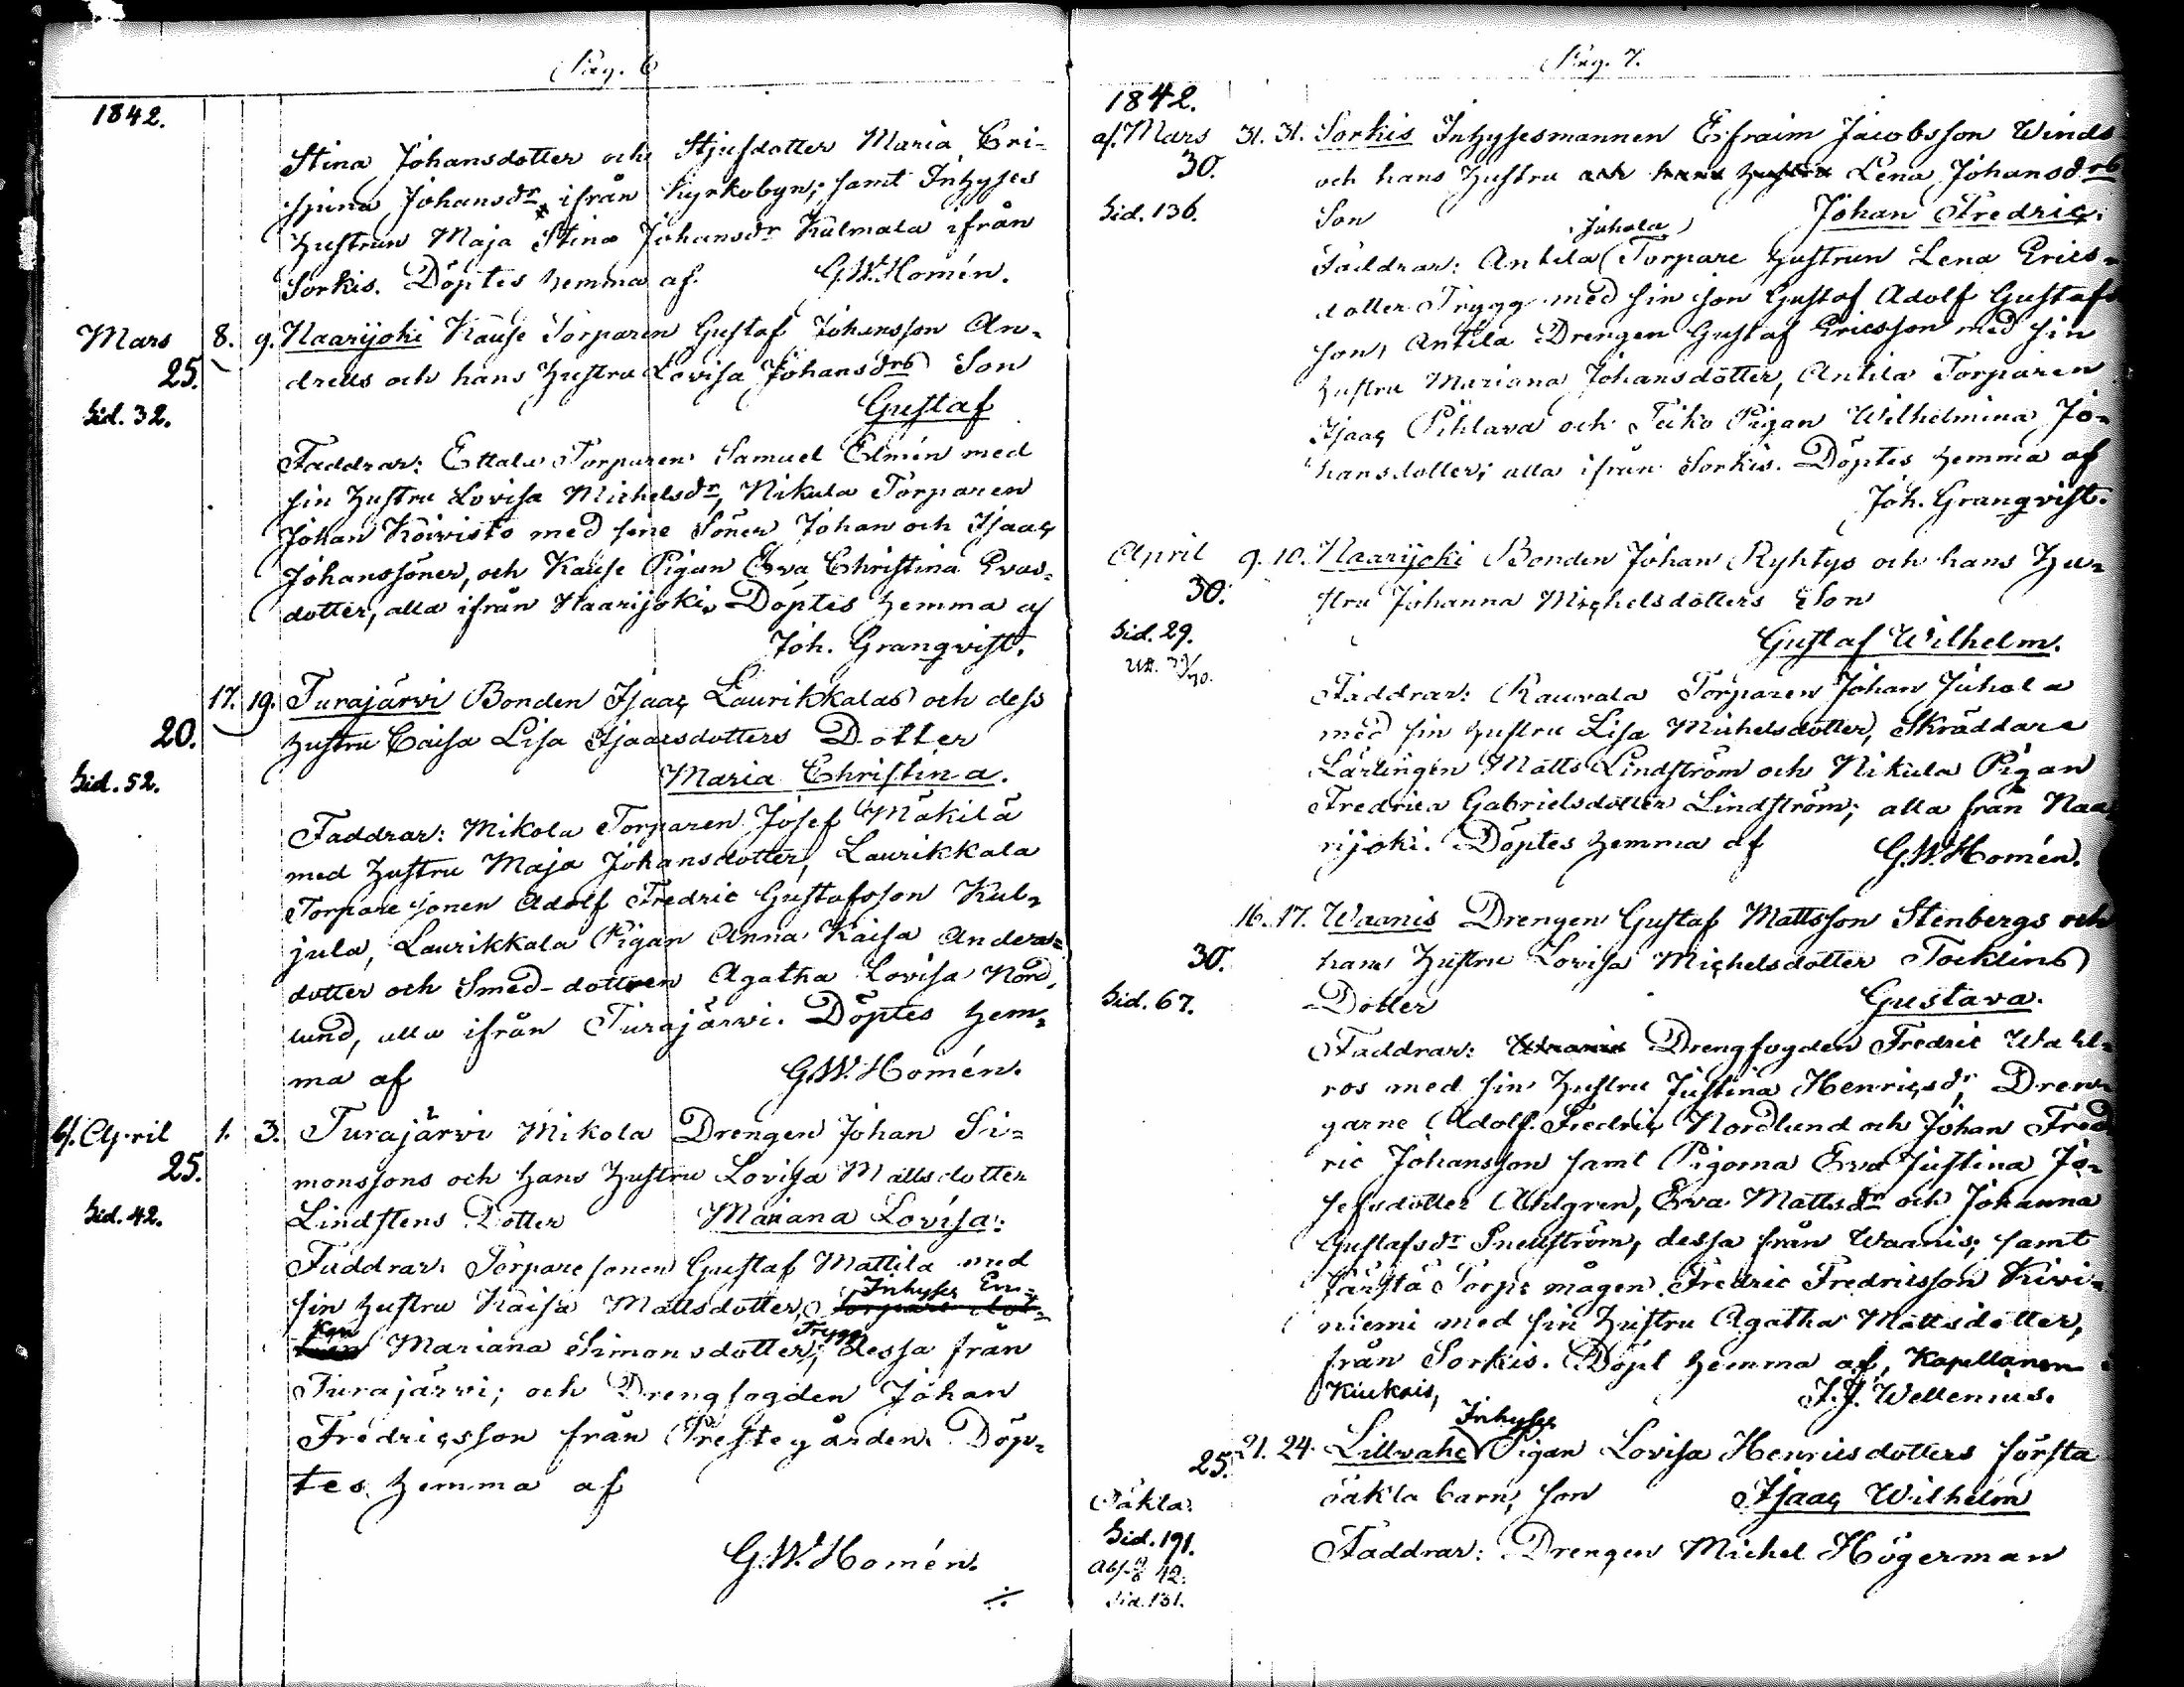 Pag. 6
1842.
Stina Johansdotter och Stjufdotter Maria Cri-
spina Johansdr ifrån Kyrkobyn; samt Inhyses
Hustrun Maja Stina Johansdr Kulmala ifrån
Sorkis. Döptes hemma af G.W. Homén.
Mars 8. 9. Naarijoki Kause Torparen Gustaf Johansson An-
25. dreus och hans Hustru Lovisa Johansdrs Son
Sid. 32. Gustaf
Faddrar: Ettala Torparen Samuel Elmén med
sin Hustru Lovisa Michelsdr, Nikula Torparen
Johan Koivisto med sine Söner Johan och Isaac
Johanssöner, och Kause Pigan Eva Christina Evas-
dotter, alla ifrån Naarijoki. Döptes hemma af
Joh. Granqvist.
17. 19. Turajärvi Bonden Isaac Laurikkalas och dess
20. Hustru Caisa Lisa Isaacsdotters Dotter
Sid. 52. Maria Christina.
Faddrar: Mikola Torparen Josef Mäkilä
med Hustru Maja Johansdotter, Laurikkala
Torpare sonen Adolf Fredric Gustafsson Kul-
jula, Laurikkala Pigan Anna Kaisa Anders-
dotter och Smed-dottren Agatha Lovisa Nord-
lund, alla ifrån Turajärvi. Döptes hem-
ma af G.W. Homén.
bf. April 1. 3. Turajärvi Mikola Drengen Johan Si-
25. monssons och hans Hustru Lovisa Mattsdotter
Sid. 42. Lindstens Dotter Mariana Lovisa.
Faddrar: Torpare sonen Gustaf Mattila med
sin Hustru Kaisa Mattsdotter, Inhyses En-
kan Mariana Simonsdotter Trygg, dessa från
Turajärvi; och Drengfogden Johan
Fredricsson från Prestegården. Döp-
tes hemma af
G.W. Homén.
Pag. 7.
1842.
af. Mars 31. 31. Sorkis Inhysesmannen Efraim Jacobsson Winds
30. och hans Hustru och hans Hustru Lena Johansdrs
Sid. 136. Son Johan Fredric.
Juhola
Faddrar: Antila Torpare Hustrun Lena Erics-
dotter Trygg med sin son Gustaf Adolf Gustafs
son, Antila Drengen Gustaf Ericsson med sin
Hustru Mariana Johansdotter, Antila Torparen
Isaac Pihlava och Teiko Pigan Wilhelmina Jo-
hansdotter; alla ifrån Sorkis. Döptes hemma af
Joh. Granqvist.
April 9. 10. Naarijoki Bonden Johan Ryhtys och hans Hu-
30. stru Johanna Michelsdotters Son
Sid. 29. Gustaf Wilhelm.
Faddrar: Rauvala Torparen Johan Juhola
med sin Hustru Lisa Michelsdotter, Skräddare
Lärlingen Matts Lindström och Nikula Pigan
Fredrica Gabrielsdotter Lindström; alla från Naa
rijoki. Döptes hemma af G.W. Homén.
16. 17. Waanis Drengen Gustaf Mattsson Stenbergs och
30. hans Hustru Lovisa Michelsdotter Tocklins
Sid. 67. Dotter Gustava.
Faddrar: Waanis Drengfogden Fredric Wahl-
ros med sin Hustru Justina Henricsdr, Dren-
garne Adolf Fredric Nordlund och Johan Fred
ric Johansson samt Pigorna Eva Justina Jo-
sefsdotter Ahlgren, Eva Mattsdr och Johanna
Gustafsdr Snellström, dessa från Waanis; samt
Torps mågen Fredric Fredricsson Kivi-
niemi med sin Hustru Agatha Mattsdotter,
från Sorkis. Döpt hemma af, Kapellanen i
Kiukais, J.J. Wellenius.
Inhyses
21. 24. Lillvahe Pigan Lovisa Henricsdotters första
25. oäkta barn, son Isaac Wilhelm
Oäkta.
Sid. 191.
Faddrar: Drengen Michel Högerman
Sid. 131.